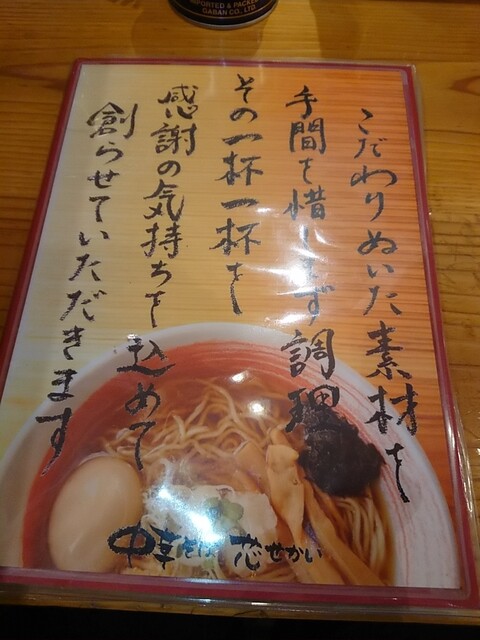 こだわりぬいた素材を
手間を惜しまず調理
その一杯一杯を
感謝の気持ちを込めて
創らせていただきます
中華そば 芯せかい
IMPORTED & PACKED
GABAN CO., LTD.